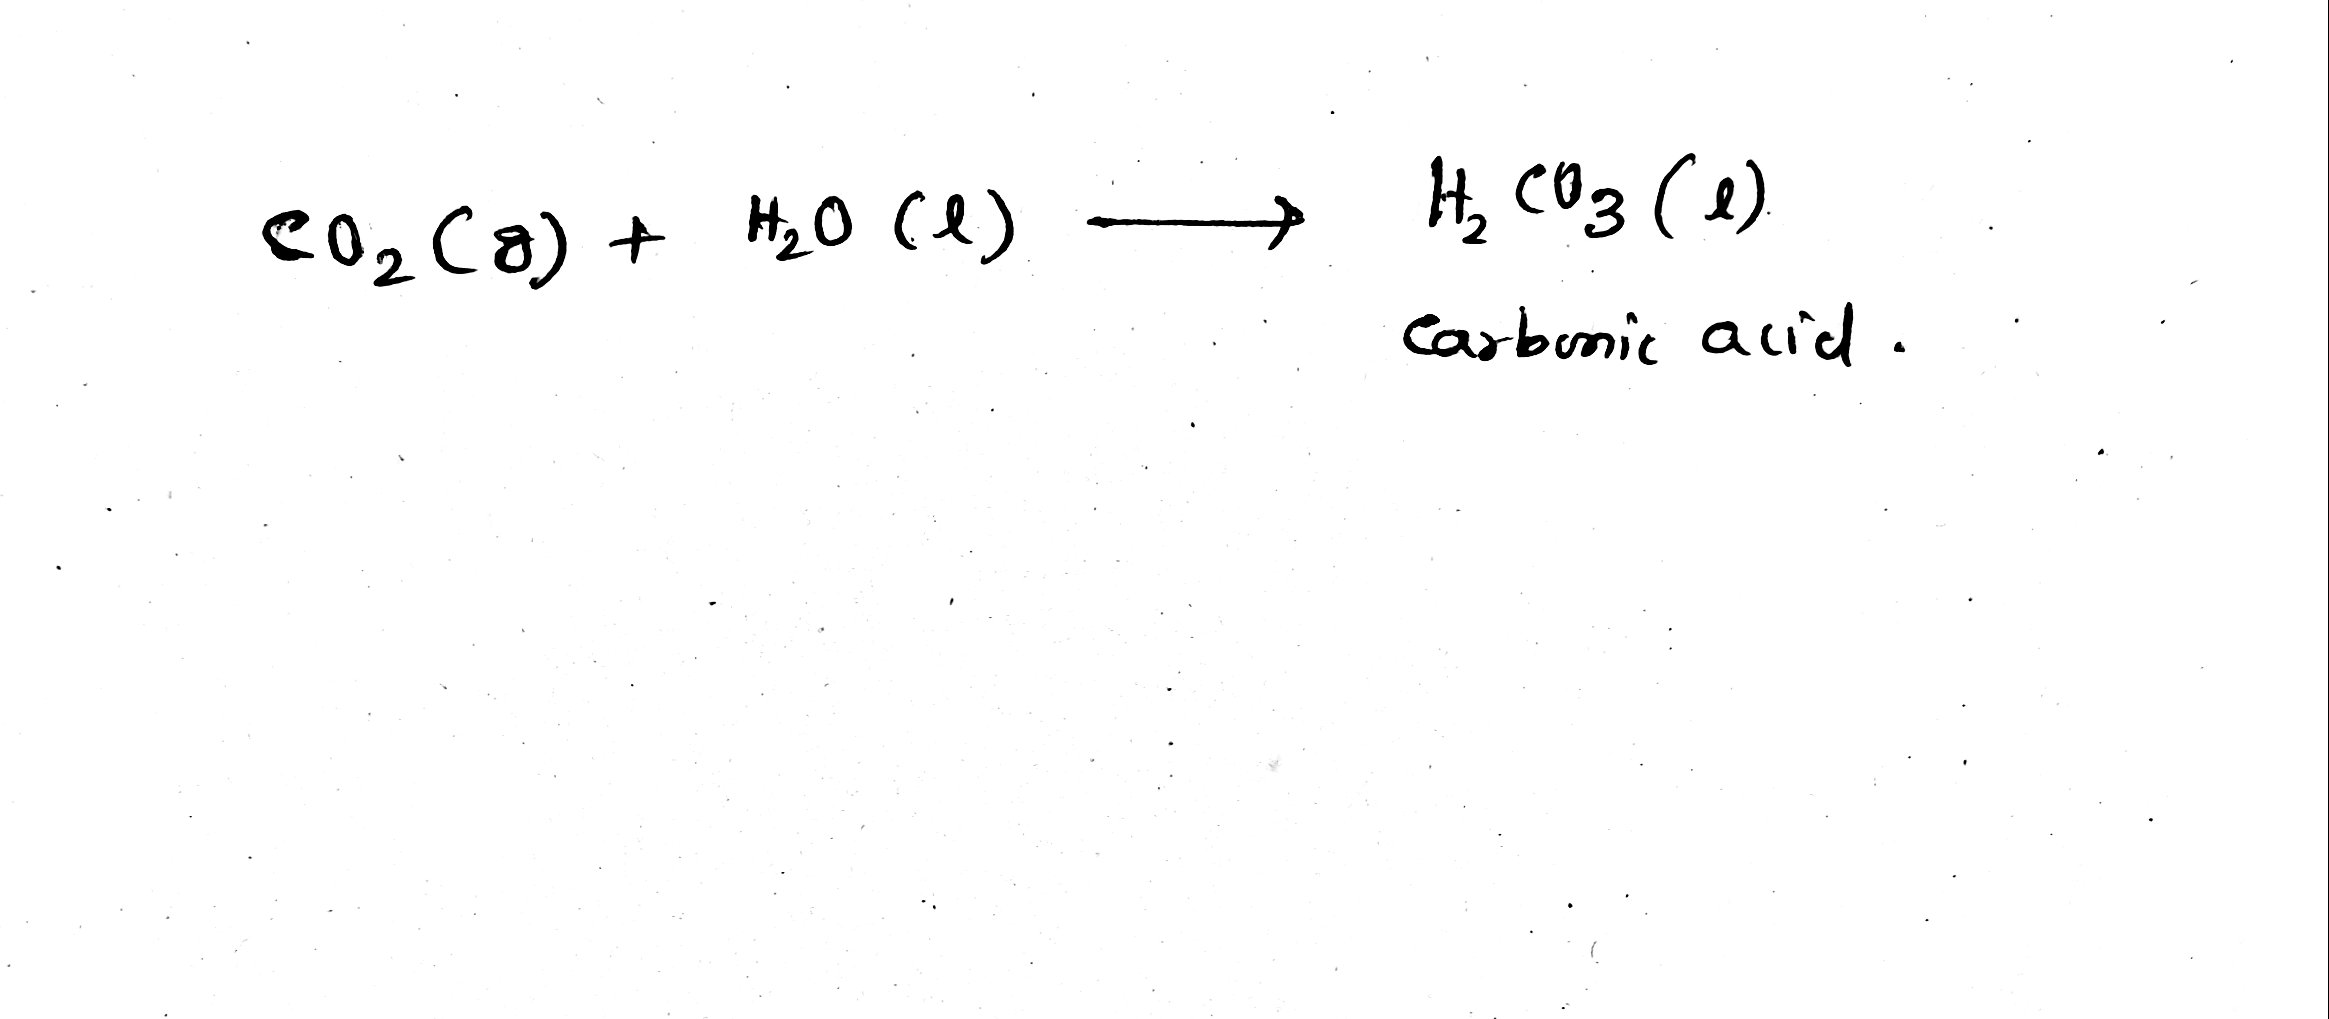 CO₂(g) + H₂O (l) ⟶ H₂CO₃(l)
Carbonic acid.